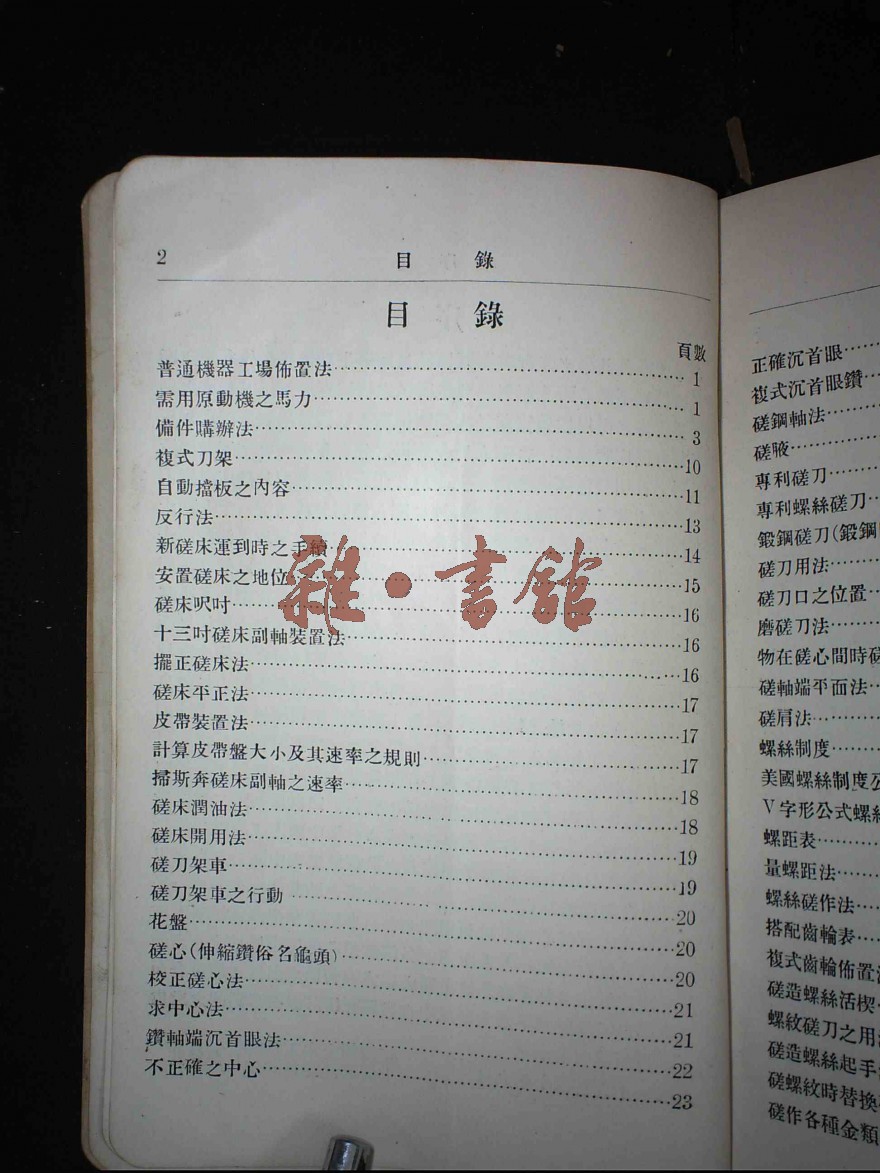 2 目 錄
目 錄
頁數
普通機器工場佈置法……1
需用原動機之馬力……1
備件購辦法……3
複式刀架……10
自動擋板之內容……11
反行法……13
新磋床運到時之手續……14
安置磋床之地位……15
磋床呎吋……16
十三吋磋床副軸裝置法……16
擺正磋床法……16
磋床平正法……17
皮帶裝置法……17
計算皮帶盤大小及其速率之規則……17
掃斯奔磋床副軸之速率……18
磋床潤油法……18
磋床開用法……19
磋刀架車……19
磋刀架車之行動……20
花盤……20
磋心(伸縮鑽俗名龜頭)……20
校正磋心法……21
求中心法……21
鑽軸端沉首眼法……22
不正確之中心……23
正確沉首眼……
複式沉首眼鑽…
磋鋼軸法……
磋腋……
專利磋刀……
專利螺絲磋刀…
鍛鋼磋刀(鍛鋼
磋刀用法……
磋刀口之位置…
磨磋刀法……
物在磋心間時磋
磋軸端平面法…
磋肩法……
螺絲制度……
美國螺絲制度公
V字形公式螺絲
螺距表……
量螺距法……
螺絲磋作法……
搭配齒輪表……
複式齒輪佈置法
磋造螺絲活楔…
螺紋磋刀之用法
磋造螺絲起手
磋螺紋時替換
磋作各種金類
雜·書館